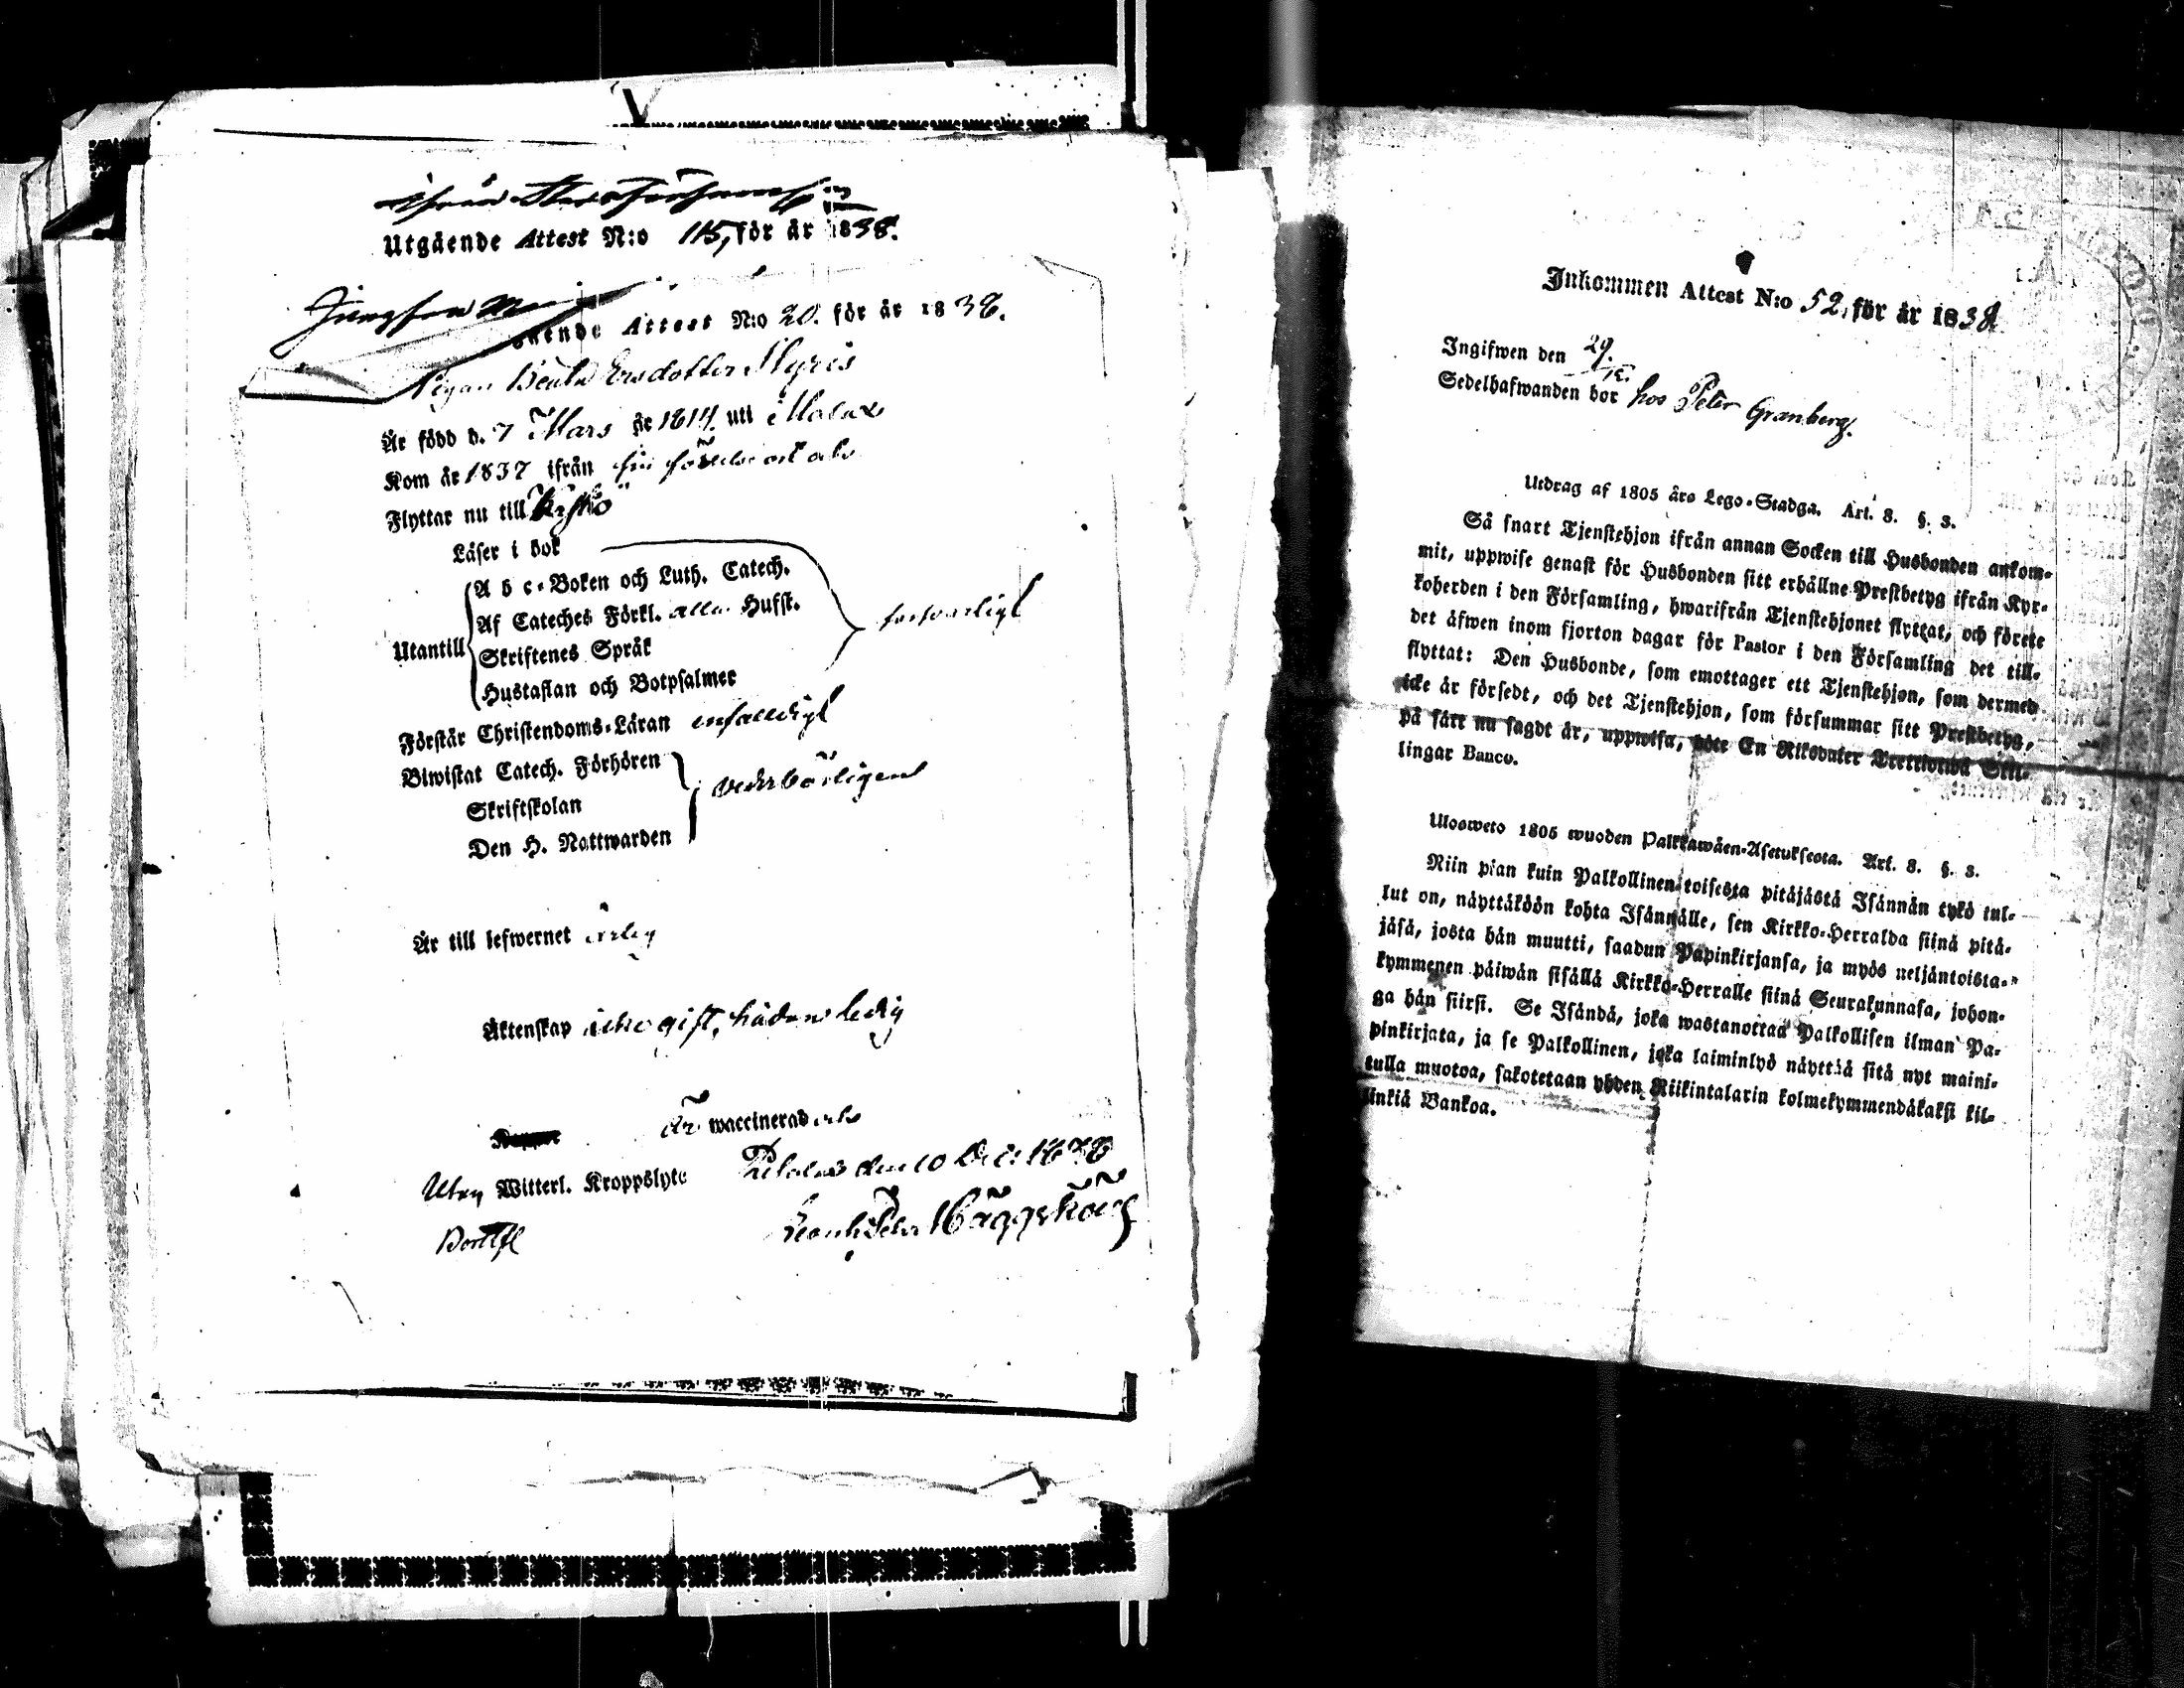 ifrån
Utgående Attest N:o 115, för år 1838.
Jungfrun
gående Attest N:o 20. för år 1838.
Pigan Beata Ersdotter Nyris
År född d. 7 Mars år 1814 uti Malax
Kom år 1837 ifrån
Flyttar nu till
Läser i bok
Utantill
A b c-Boken och Luth. Catech.
Af Cateches Förkl. alla Hufst.
Skriftenes Språk
Hustaflan och Botpsalmer
försvarligt
Förstår Christendoms-Läran enfaldigt
Biwistat Catech. Förhören
Skriftskolan
Den H. Nattwarden
vederbörligen
År till lefwernet ärlig
Äktenskap icke gift, hädan ledig
Är waccinerad
Utan Witterl. Kroppslyte
den 10 1838
Inkommen Attest N:o 52, för år 1838
Ingifwen den 29/12.
Sedelhafwanden bor hos Peter Granberg.
Utdrag af 1805 års Lego-Stadga. Art. 8. §. 3.
Så snart Tjenstehjon ifrån annan Socken till Husbonden ankom-
mit, uppwise genast för Husbonden sitt erhållne Prestbetyg ifrån Kyr-
koherden i den Församling, hwarifrån Tjenstehjonet flyttat, och förete
det äfwen inom fjorton dagar för Pastor i den Församling det till-
flyttat: Den Husbonde, som emottager ett Tjenstehjon, som dermed
icke är försedt, och det Tjenstehjon, som försummar sitt Prestbetyg,
på sätt nu sagdt är, uppwisa, böte En Riksdaler Trettiotwå Skil-
lingar Banco.
Uloswето 1805 wuoden Palkkawäen-Asetuksesta. Art. 8. §. 3.
Niin pian kuin Palkollinen toisesta pitäjästä Isännän tykö tul-
lut on, näyttäköön kohta Isännälle, sen Kirkko-Herralda siinä pitä-
jäsä, josta hän muutti, saadun Papinkirjansa, ja myös neljäntoista-
kymmenen päiwän sisällä Kirkko-Herralle siinä Seurakunnasa, johon-
ga hän siirsi. Se Isändä, joka wastanottaa Palkollisen ilman Pa-
pinkirjata, ja se Palkollinen, joka laiminlyö näyttää sitä nyt maini-
tulla muotoa, sakotetaan yhden Riikintalarin kolmekymmendäkaksi kil-
linkiä Bankoa.